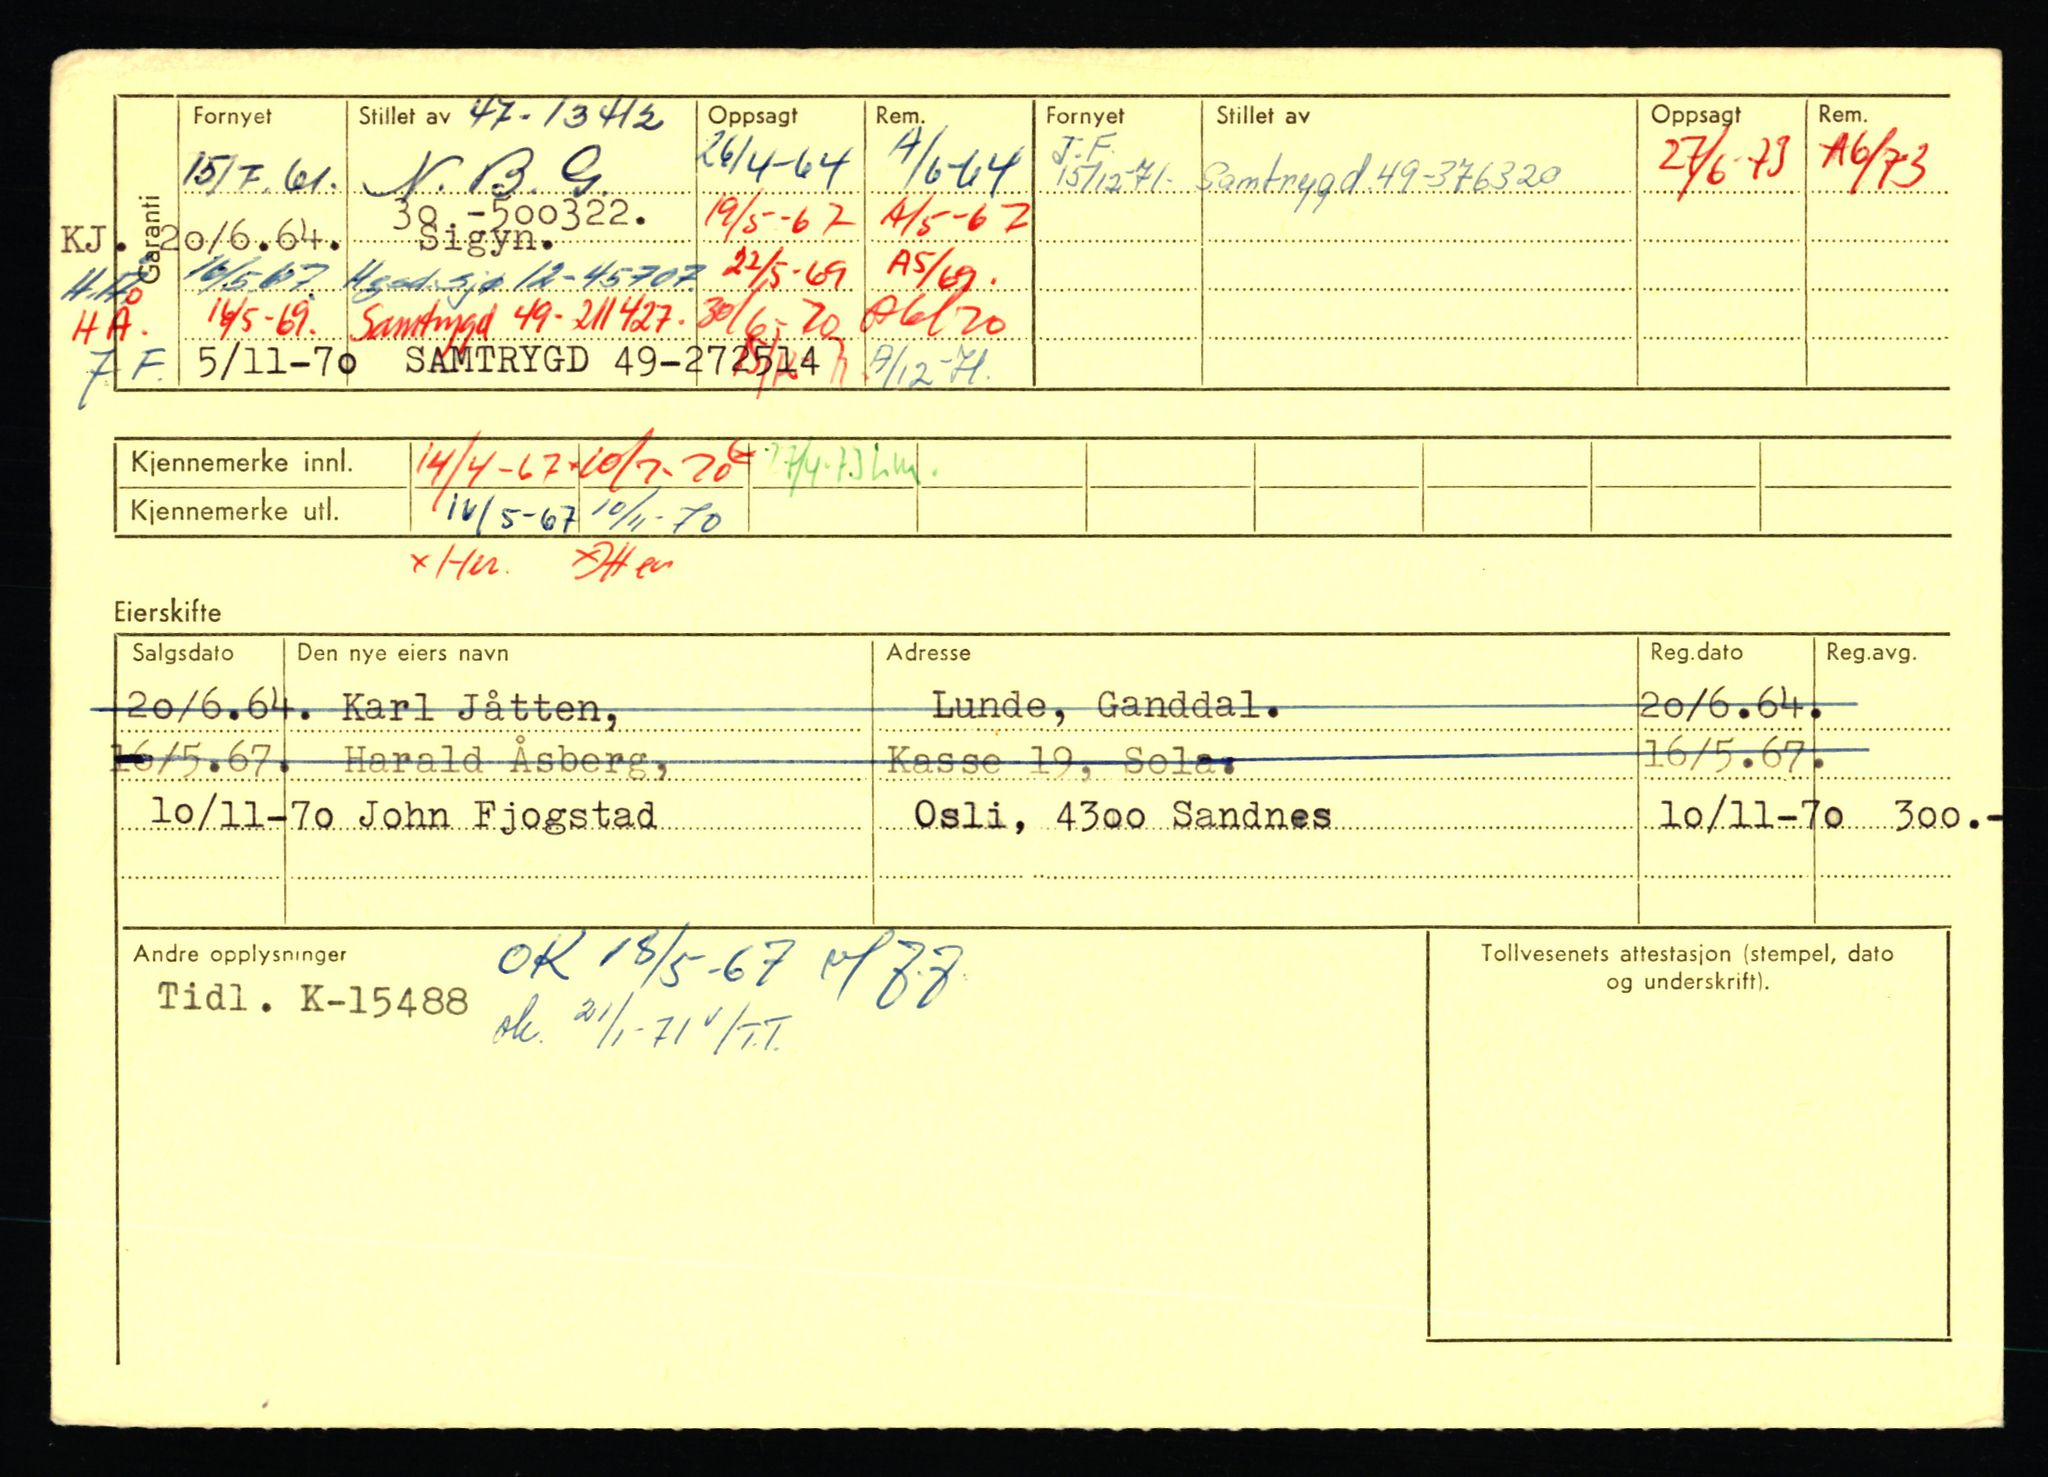 Garanti
Fornyet Stillet av 47-13412 Oppsagt Rem. Fornyet Stillet av Oppsagt Rem.
15/7.61. N. B. G. 26/4-64 A/6-64 J.F. 15/12-71. Samtrygd 49-376320 27/6-73 A6/73
30 -500322.
KJ. 20/6.64. Sigyn. 19/5-67 A/5-67
H.Å. 16/5-67. 12-45707 22/5-69 A5/69.
HÅ. 16/5-69. Samtrygd 49-211427. 30/6-70 A6/70
J F. 5/11-70 SAMTRYGD 49-272514 A/12-71.
Kjennemerke innl. 14/4-67 x 10/7-70 27/4-73
Kjennemerke utl. 16/5-67 10/11-70
x Her.
Eierskifte
Salgsdato Den nye eiers navn Adresse Reg.dato Reg.avg.
20/6.64. Karl Jåtten, Lunde, Ganddal. 20/6.64.
16/5.67. Harald Åsberg, Kasse 19, Sola. 16/5.67.
10/11-70 John Fjogstad Osli, 4300 Sandnes 10/11-70 300.-
Andre opplysninger OK 18/5-67
Tidl. K-15488
ok. 21/1-71 v/T.T.
Tollvesenets attestasjon (stempel, dato
og underskrift).